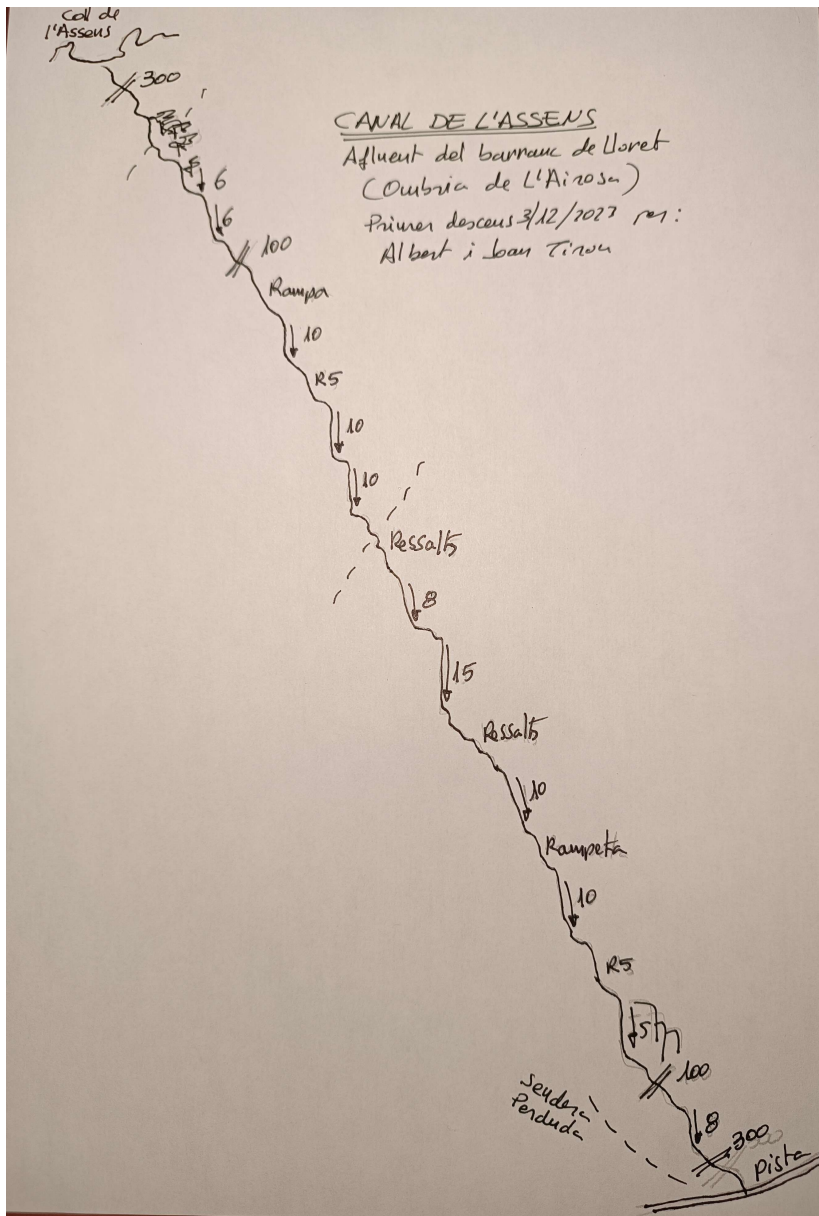 Coll de
l'Assens
300
CANAL DE L'ASSENS
Afluent del barranc de Lloret
(Ombria de L'Airosa)
Primer descens 3/12/2023 per:
Albert i Joan Tirou
6
6
100
Rampa
10
R5
10
10
Ressalts
8
15
Ressalts
10
Rampeta
10
R5
5
100
Sendera
Perduda
8
300
Pista